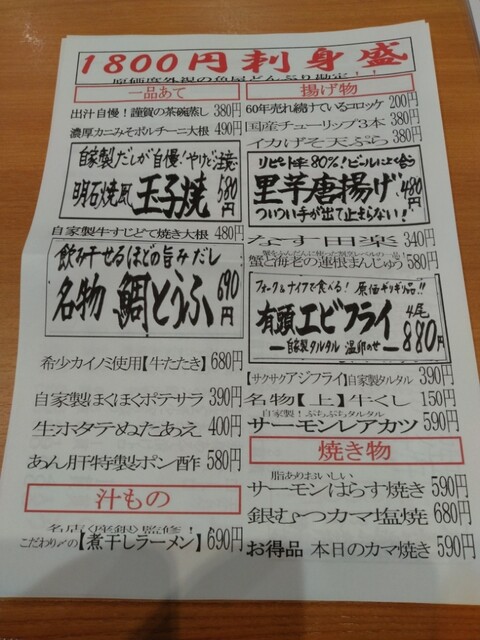 1800円刺身盛
原価度外視の魚屋どんぶり勘定!!
一品あて
出汁自慢!謹賀の茶碗蒸し 380円
濃厚カニみそポルチーニ大根 490円
自家製だしが自慢!やけど注意
明石焼風 玉子焼 580円
自家製牛すじとて焼き大根 480円
飲み干せるほどの旨みだし
名物 鯛とうふ 690円
希少カイノミ使用【牛たたき】 680円
自家製ほくほくポテサラ 390円
生ホタテぬたあえ 400円
あん肝特製ポン酢 580円
汁もの
こだわり〆の【煮干しラーメン】 690円
揚げ物
60年売れ続けているコロッケ 200円
国産チューリップ3本 380円
イカげそ天ぷら 380円
リピート率80%!ビールによく合う
里芋唐揚げ 480円
ついつい手が出て止まらない!
なす田楽 340円
蟹と海老の蓮根まんじゅう 580円
フォーク&ナイフで食べる! 原価ギリギリ品!!
有頭エビフライ 4尾 880円
―自家製タルタル 温卵のせ―
【サクサクアジフライ】自家製タルタル 390円
名物【上】牛くし 150円
自家製!ぷちぷちタルタル
サーモンレアカツ 590円
焼き物
脂ありおいしい
サーモンはらす焼き 590円
銀むつカマ塩焼 680円
お得品 本日のカマ焼き 590円